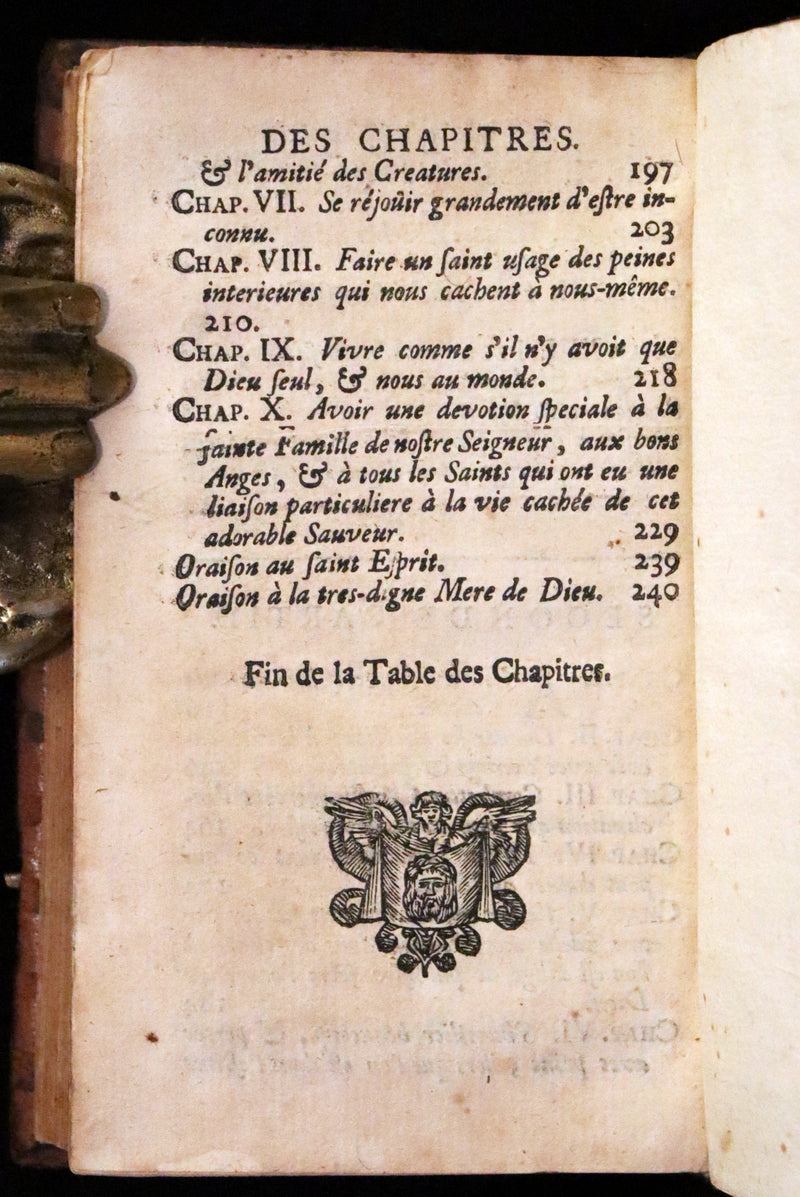 DES CHAPITRES.
& l'amitié des Creatures. 197
CHAP. VII. Se réjoüir grandement d'eſtre in-
connu. 203
CHAP. VIII. Faire un ſaint uſage des peines
interieures qui nous cachent à nous-même.
210.
CHAP. IX. Vivre comme s'il n'y avoit que
Dieu ſeul, & nous au monde. 218
CHAP. X. Avoir une devotion ſpeciale à la
ſainte Famille de noſtre Seigneur, aux bons
Anges, & à tous les Saints qui ont eu une
liaiſon particuliere à la vie cachée de cet
adorable Sauveur. 229
Oraiſon au ſaint Eſprit. 239
Oraiſon à la tres-digne Mere de Dieu. 240
Fin de la Table des Chapitres.